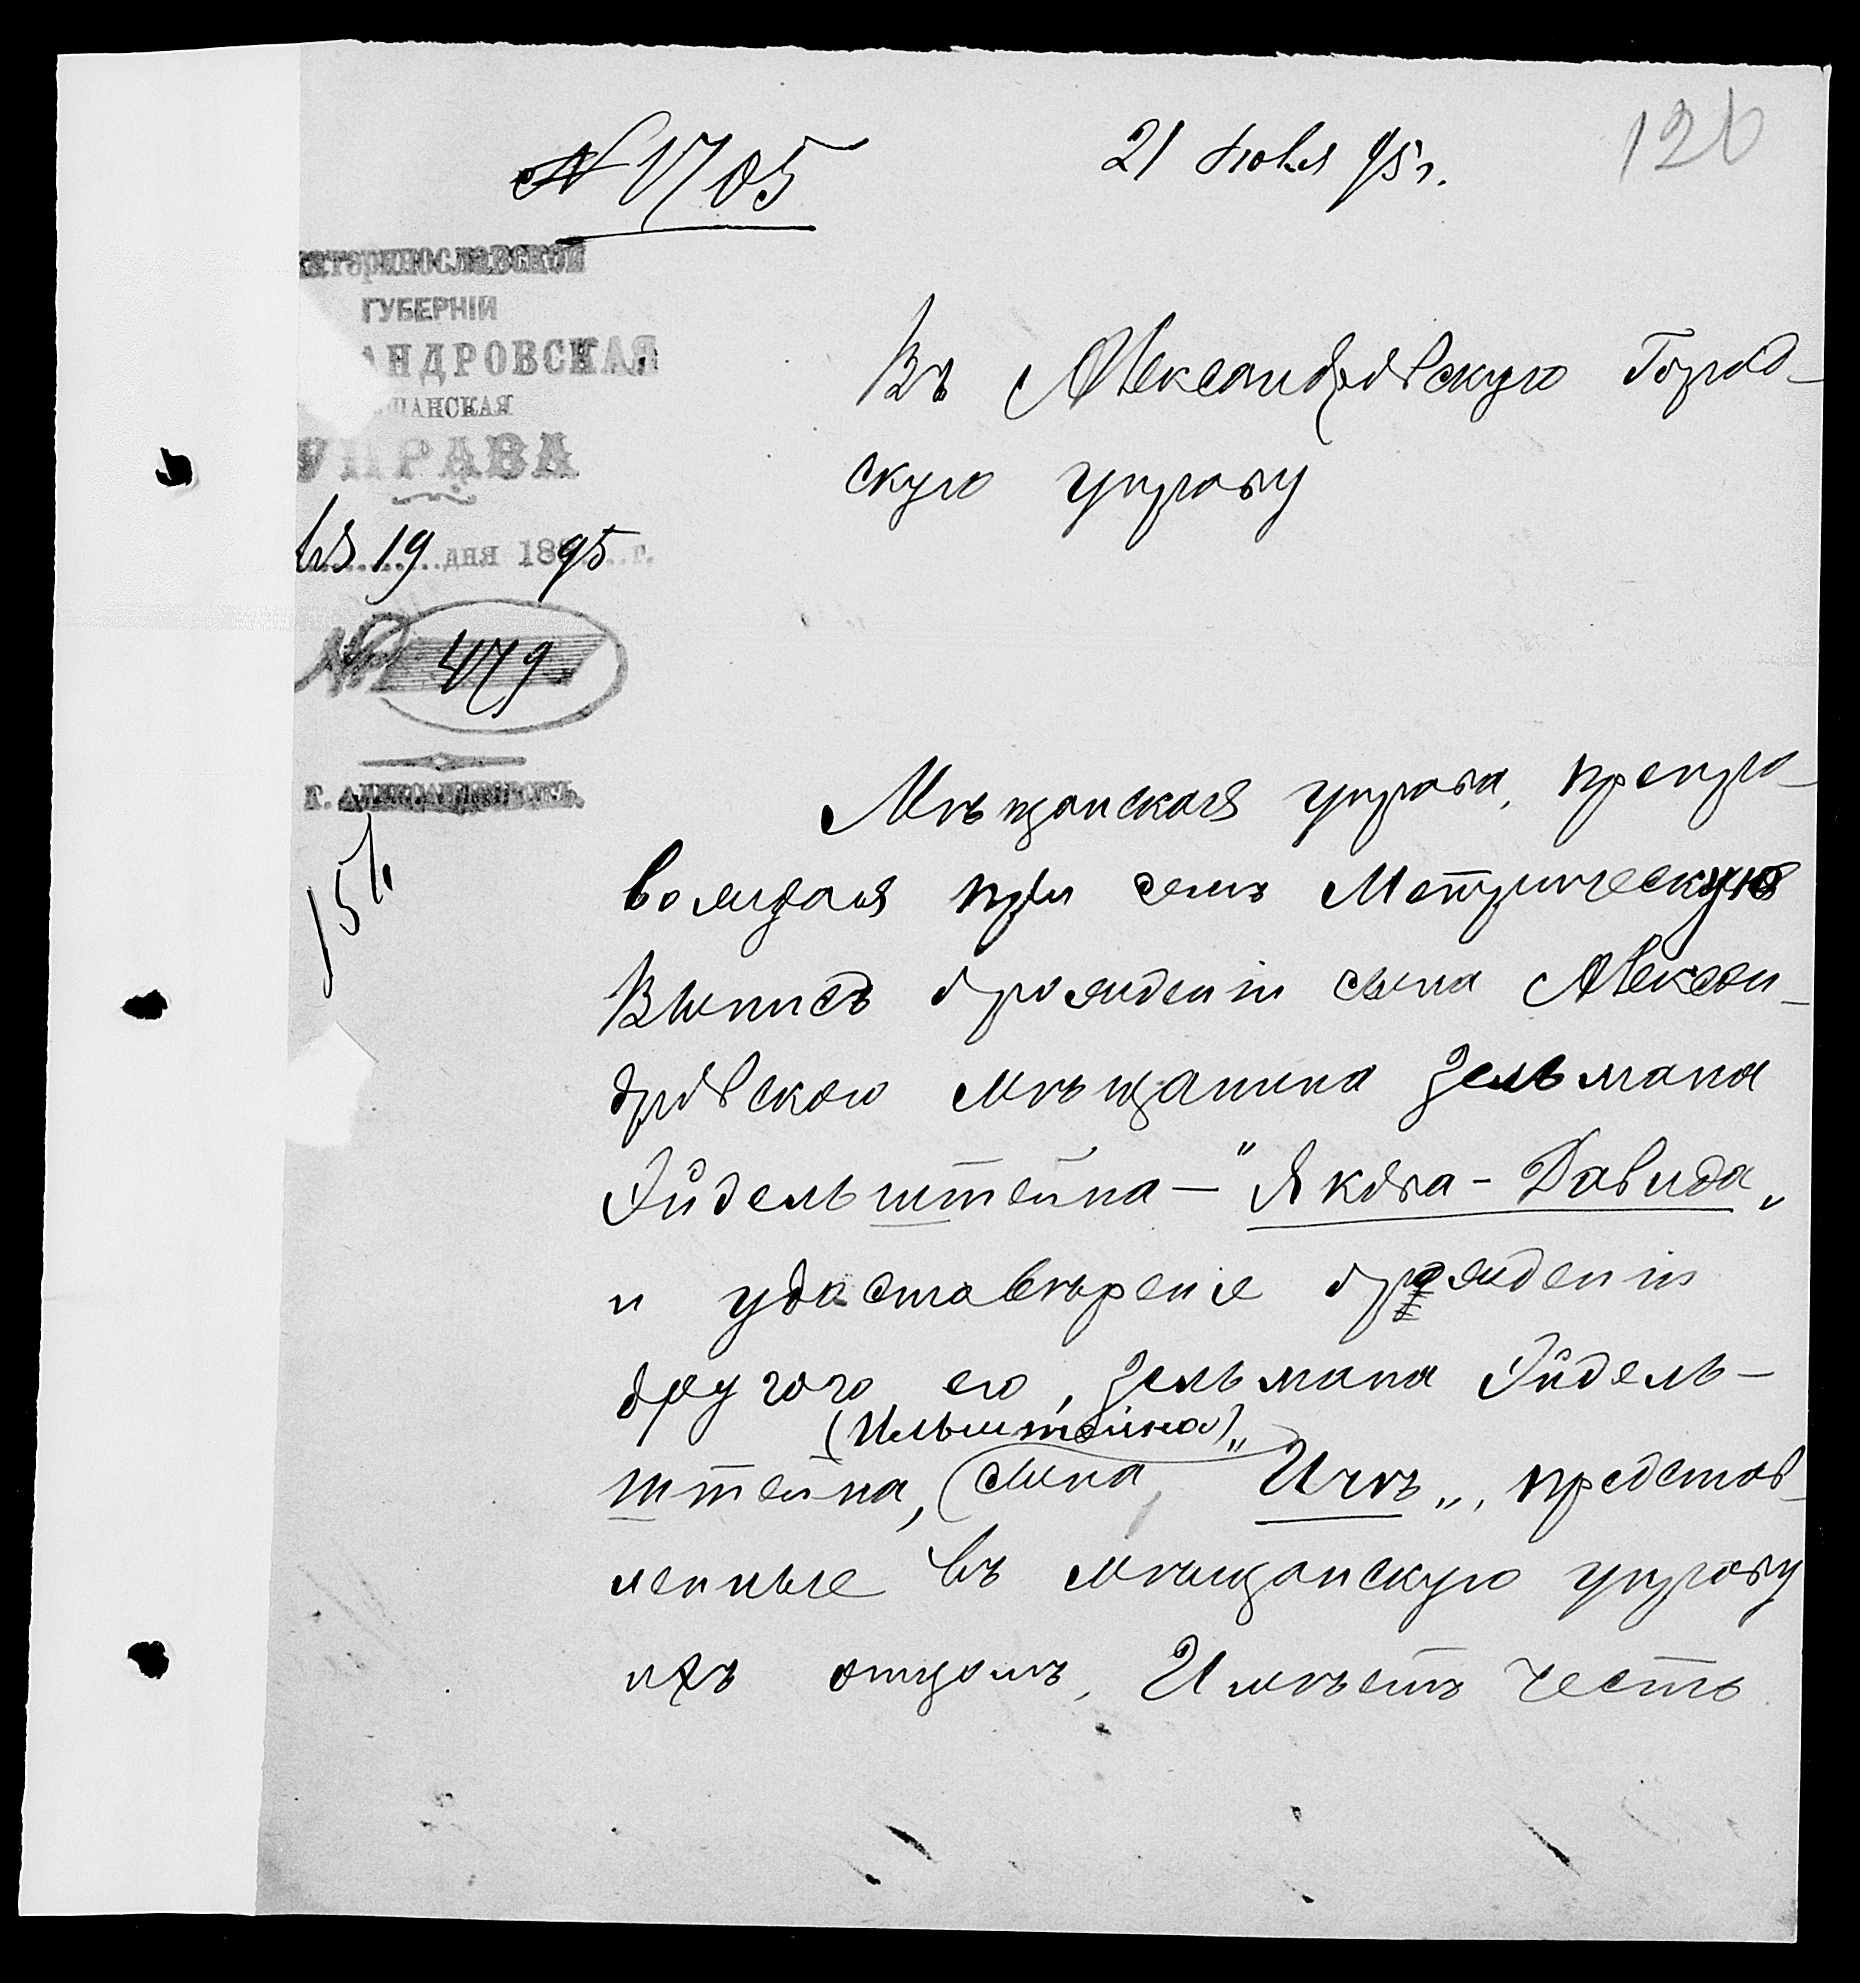 № 1705
21 Июля 95 г.
126
катеринославской
ГУБЕРНІИ
АНДРОВСКАЯ
ЩАНСКАЯ
УПРАВА
19 дня 1895 г.
№ 479
г. Александровскъ.
Въ Александровскую Город-
скую управу
Мѣщанская управа, препро-
вождая при семъ Метрическую
Выпись о рожденіи сына Алексан-
дровского мѣщанина Зельмана
Эйдельштейна — "Якова - Давида„
и удостовѣреніе о рожденіи
другого его, Зельмана Эйдель-
(Ильштейна)
штейна, сына "Ичъ„, представ-
ленные въ мѣщанскую управу
ихъ отцомъ, Имѣетъ честь